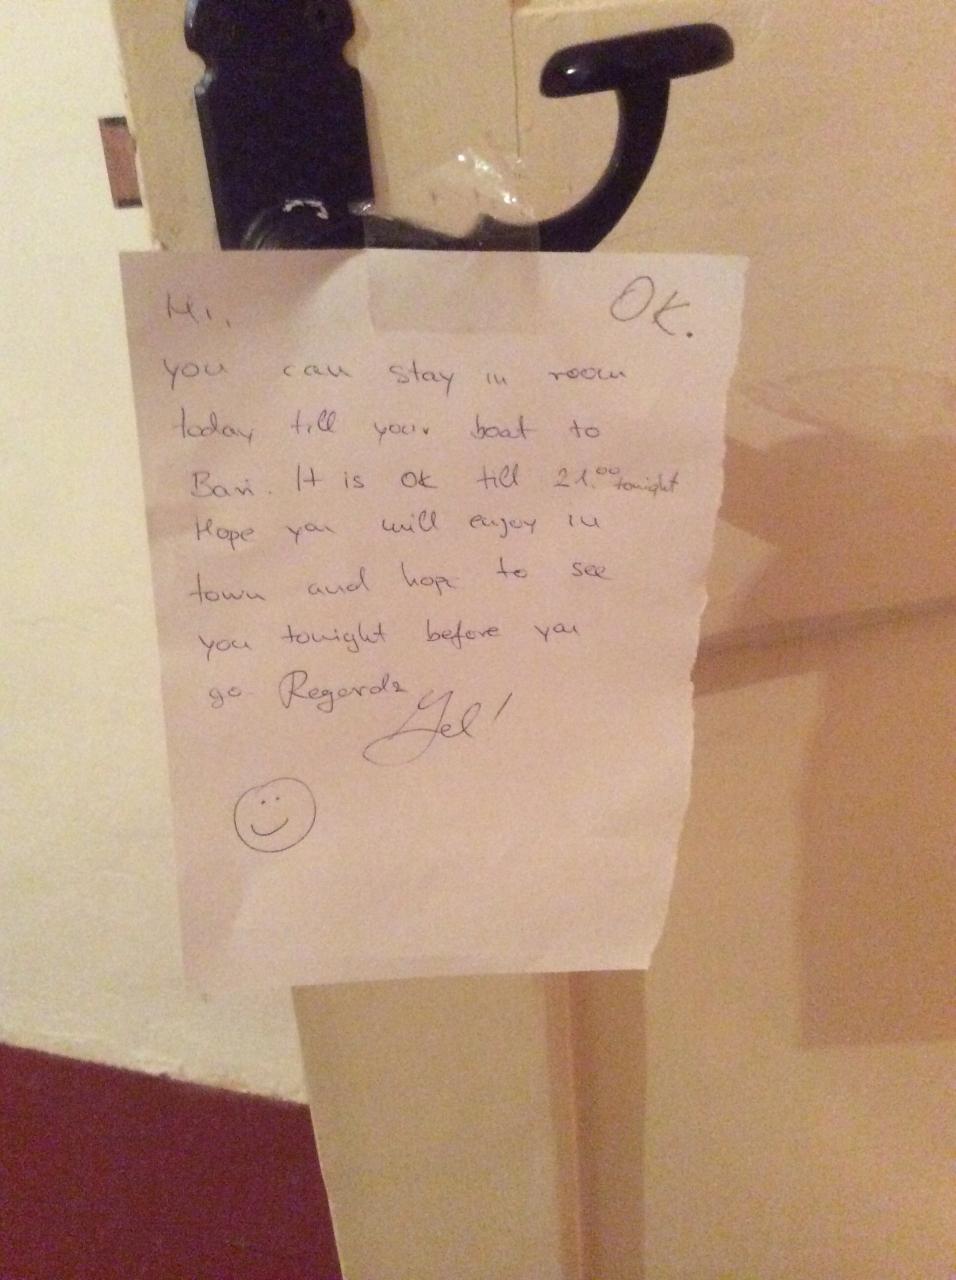 Hi,
OK.
you can stay in room
today till your boat to
Bari. It is OK till 21.00 tonight
Hope you will enjoy in
town and hope to see
you tonight before you
go. Regards